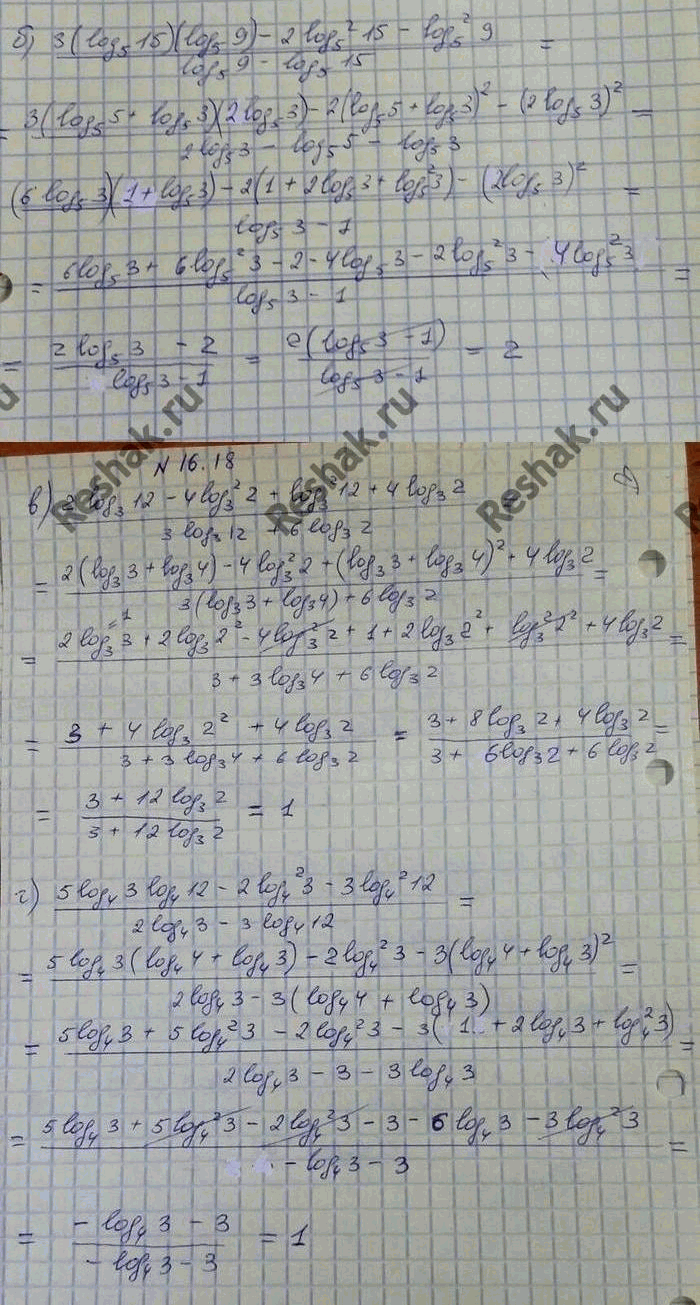 б) (3(log₅15)(log₅9) - 2log₅²15 - log₅²9)/(log₅9 - log₅15) =
= (3(log₅5 + log₅3)(2log₅3) - 2(log₅5 + log₅3)² - (2log₅3)²)/(2log₅3 - log₅5 - log₅3) =
((6log₅3)(1 + log₅3) - 2(1 + 2log₅3 + log₅²3) - (2log₅3)²)/(log₅3 - 1) =
= (6log₅3 + 6log₅²3 - 2 - 4log₅3 - 2log₅²3 - 4log₅²3)/(log₅3 - 1) =
= (2log₅3 - 2)/(log₅3 - 1) = (2(log₅3 - 1))/(log₅3 - 1) = 2
Reshak.ru
Reshak.ru
N 16.18
в) (2log₃12 - 4log₃²2 + log₃²12 + 4log₃2)/(3log₃12 + 6log₃2) =
= (2(log₃3 + log₃4) - 4log₃²2 + (log₃3 + log₃4)² + 4log₃2)/(3(log₃3 + log₃4) + 6log₃2) =
=1
= (2log₃3 + 2log₃2² - 4log₃²2 + 1 + 2log₃2² + log₃²2² + 4log₃2)/(3 + 3log₃4 + 6log₃2) =
= (3 + 4log₃2² + 4log₃2)/(3 + 3log₃4 + 6log₃2) = (3 + 8log₃2 + 4log₃2)/(3 + 6log₃2 + 6log₃2) =
= (3 + 12log₃2)/(3 + 12log₃2) = 1
г) (5log₄3 log₄12 - 2log₄²3 - 3log₄²12)/(2log₄3 - 3log₄12) =
= (5log₄3(log₄4 + log₄3) - 2log₄²3 - 3(log₄4 + log₄3)²)/(2log₄3 - 3(log₄4 + log₄3)) =
= (5log₄3 + 5log₄²3 - 2log₄²3 - 3(1 + 2log₄3 + log₄²3))/(2log₄3 - 3 - 3log₄3) =
= (5log₄3 + 5log₄²3 - 2log₄²3 - 3 - 6log₄3 - 3log₄²3)/(-log₄3 - 3) =
= (-log₄3 - 3)/(-log₄3 - 3) = 1